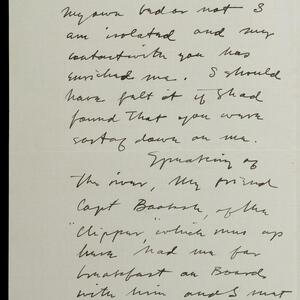 my own bed or not I
am isolated and my
contact with you has
enriched me. I should
have felt it if I had
found that you were
sort of down on me.
Speaking of
the river, my friend
Capt of the
"Clipper" which runs up
here, had me for
breakfast on Board
with him and I met